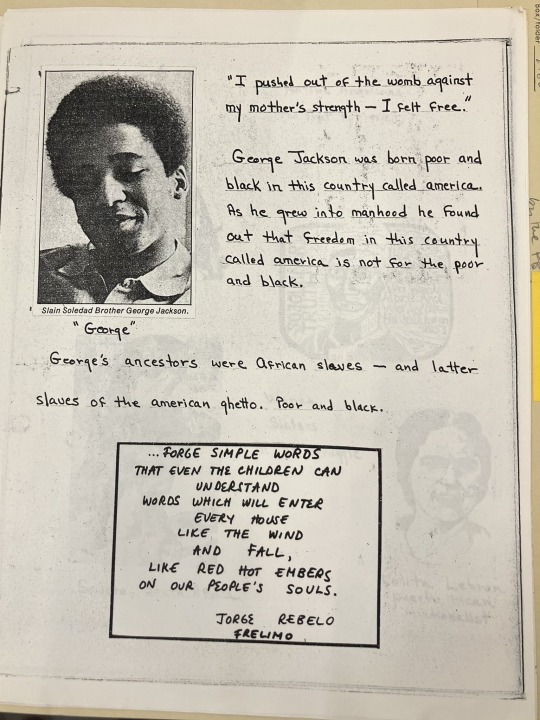 "I pushed out of the womb against
my mother's strength — I felt free."
George Jackson was born poor and
black in this country called america.
As he grew into manhood he found
out that freedom in this country
called america is not for the poor
and black.
Slain Soledad Brother George Jackson.
"George"
George's ancestors were African slaves — and latter
slaves of the american ghetto. Poor and black.
...FORGE SIMPLE WORDS
THAT EVEN THE CHILDREN CAN
UNDERSTAND
WORDS WHICH WILL ENTER
EVERY HOUSE
LIKE THE WIND
AND FALL,
LIKE RED HOT EMBERS
ON OUR PEOPLE'S SOULS.
JORGE REBELO
FRELIMO
Lebron
puerto rican